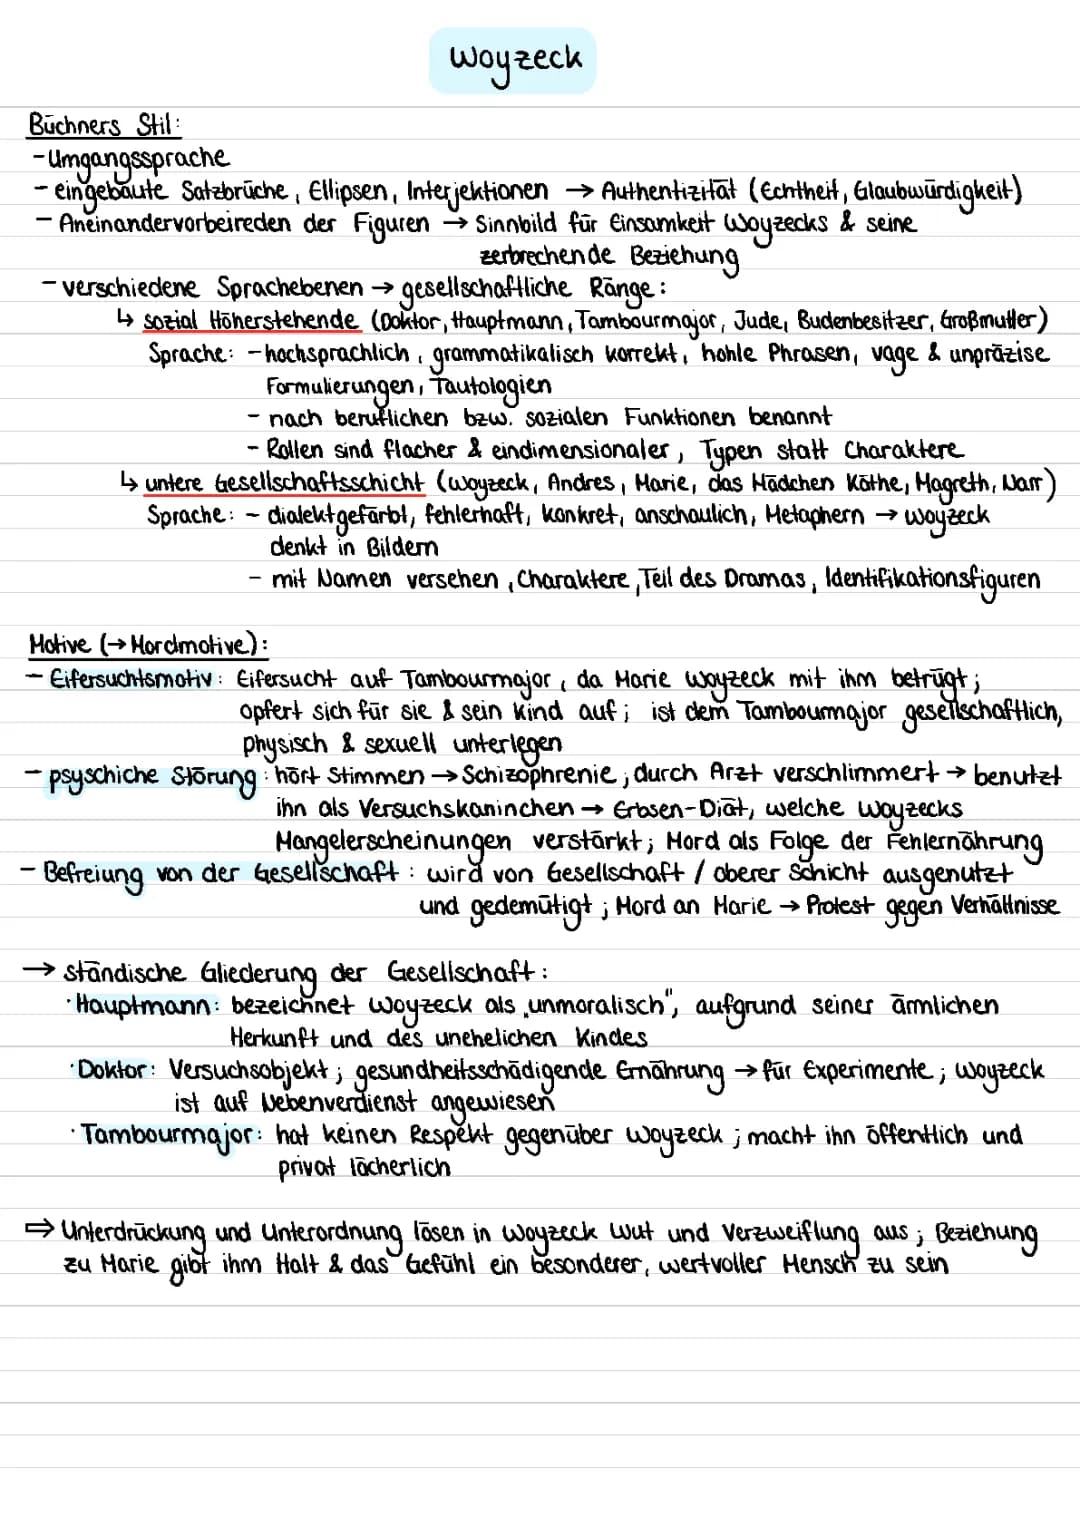 Woyzeck
Büchners Stil:
- Umgangssprache
- eingebaute Satzbrüche, Ellipsen, Interjektionen → Authentizität (Echtheit, Glaubwürdigkeit)
- Aneinandervorbeireden der Figuren → Sinnbild für Einsamkeit Woyzecks & seine
zerbrechende Beziehung
- verschiedene Sprachebenen → gesellschaftliche Ränge:
↳ sozial Höherstehende (Doktor, Hauptmann, Tambourmajor, Jude, Budenbesitzer, Großmutter)
Sprache: - hochsprachlich, grammatikalisch korrekt, hohle Phrasen, vage & unpräzise
Formulierungen, Tautologien
- nach beruflichen bzw. sozialen Funktionen benannt
- Rollen sind flacher & eindimensionaler, Typen statt Charaktere
↳ untere Gesellschaftsschicht (Woyzeck, Andres, Marie, das Mädchen Käthe, Magreth, Narr)
Sprache: - dialektgefärbt, fehlerhaft, konkret, anschaulich, Metaphern → Woyzeck
denkt in Bildern
- mit Namen versehen, Charaktere, Teil des Dramas, Identifikationsfiguren
Motive (→ Mordmotive):
- Eifersuchtsmotiv: Eifersucht auf Tambourmajor, da Marie Woyzeck mit ihm betrügt;
opfert sich für sie & sein Kind auf; ist dem Tambourmajor gesellschaftlich,
physisch & sexuell unterlegen
- psyschiche Störung: hört Stimmen → Schizophrenie; durch Arzt verschlimmert → benutzt
ihn als Versuchskaninchen → Erbsen-Diät, welche Woyzecks
Mangelerscheinungen verstärkt; Mord als Folge der Fehlernährung
- Befreiung von der Gesellschaft: wird von Gesellschaft / oberer Schicht ausgenutzt
und gedemütigt; Mord an Marie → Protest gegen Verhältnisse
→ ständische Gliederung der Gesellschaft:
· Hauptmann: bezeichnet Woyzeck als „unmoralisch", aufgrund seiner ärmlichen
Herkunft und des unehelichen Kindes
· Doktor: Versuchsobjekt; gesundheitsschädigende Ernährung → für Experimente; Woyzeck
ist auf Nebenverdienst angewiesen
· Tambourmajor: hat keinen Respekt gegenüber Woyzeck; macht ihn öffentlich und
privat lächerlich
⇒ Unterdrückung und Unterordnung lösen in Woyzeck Wut und Verzweiflung aus; Beziehung
zu Marie gibt ihm Halt & das Gefühl ein besonderer, wertvoller Mensch zu sein